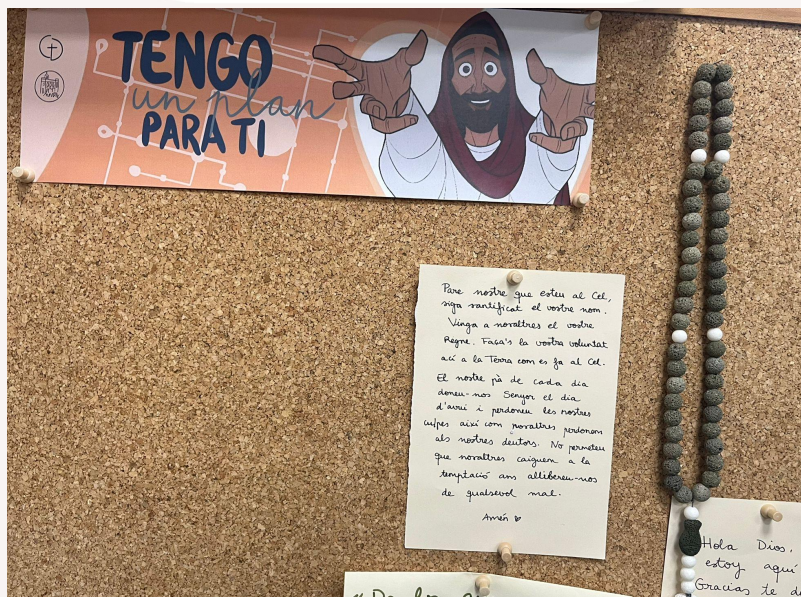 TENGO
un plan
PARA TI
Pare nostre que esteu al Cel,
siga santificat el vostre nom.
Vinga a nosaltres el vostre
Regne. Faça's la vostra voluntat
ací a la Terra com es fa al Cel.
El nostre pà de cada dia
doneu-nos Senyor el dia
d'avui i perdoneu les nostres
culpes així com nosaltres perdonem
als nostres deutors. No permeteu
que nosaltres caiguem a la
temptació ans allibereu-nos
de qualsevol mal.
Amén
Hola Dios,
estoy aquí
Gracias te